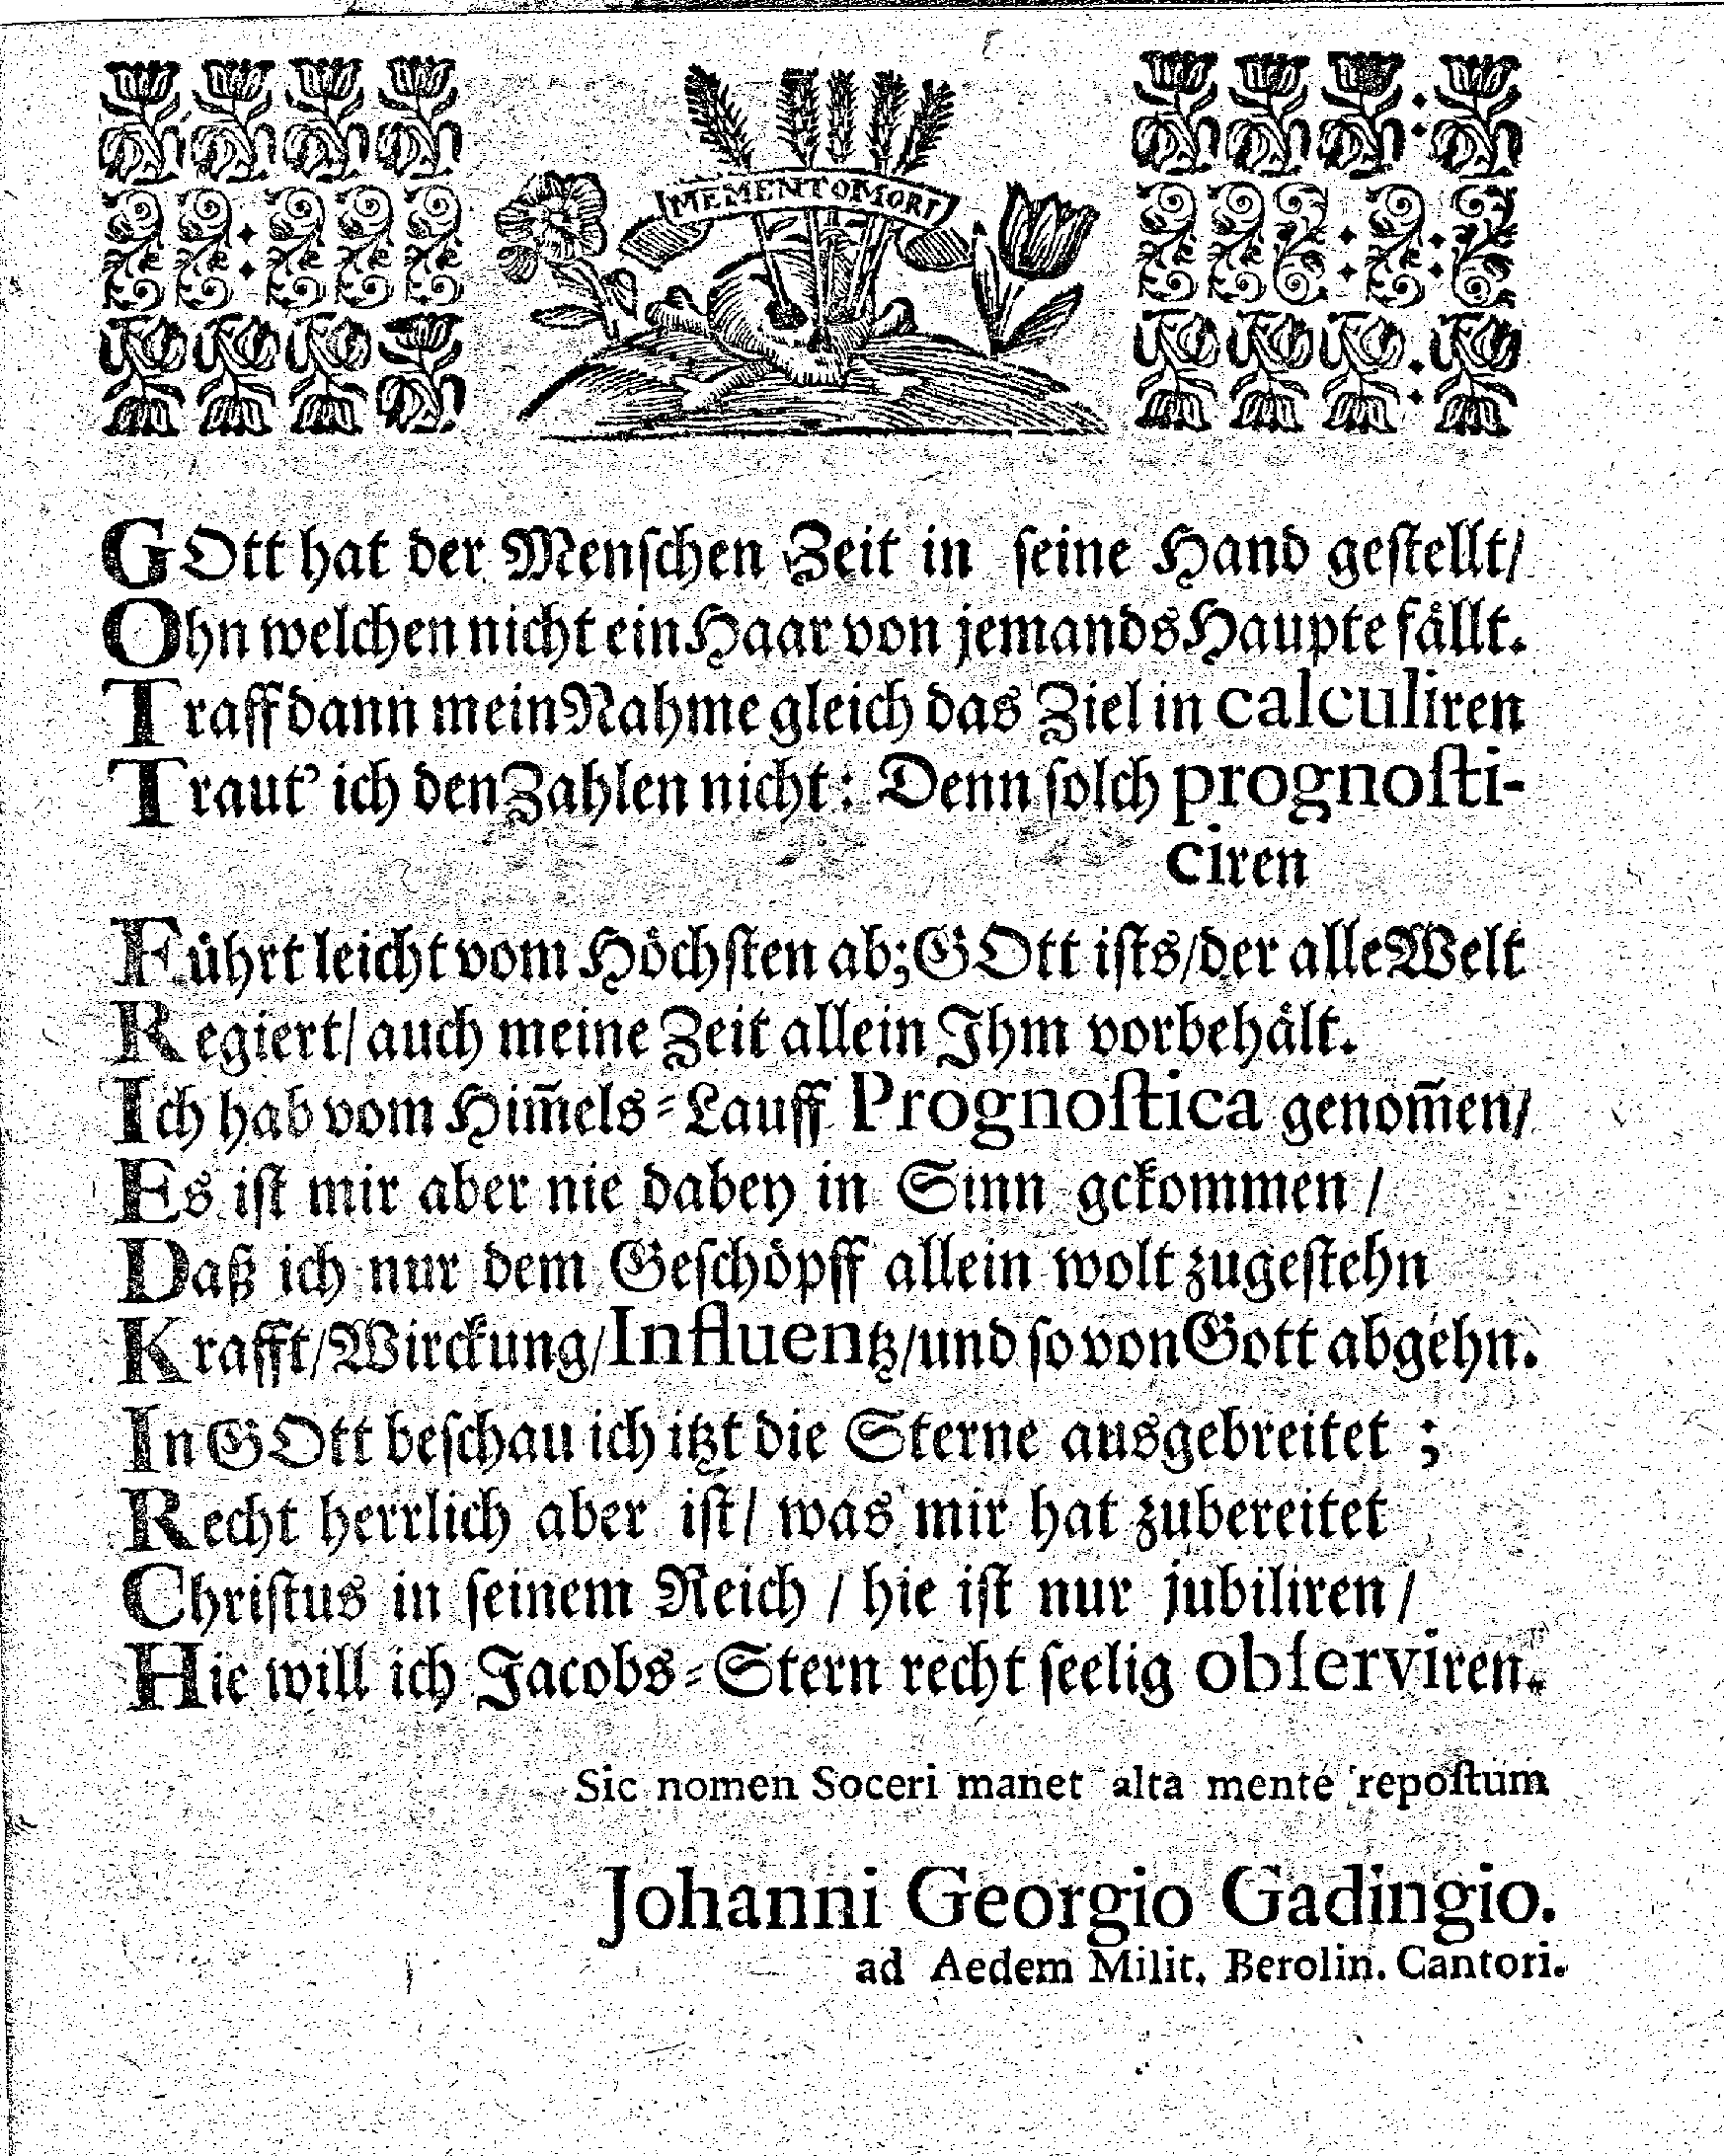 MEMENTO MORI
GOtt hat der Menſchen Zeit in ſeine Hand geſtellt/
Ohn welchen nicht ein Haar von jemands Haupte faͤllt.
Traff dann mein Nahme gleich das Ziel in calculiren
Traut’ ich den Zahlen nicht: Denn ſolch prognoſti-
ciren
Fuͤhrt leicht vom Hoͤchſten ab; GOtt iſts/ der alle Welt
Regiert/ auch meine Zeit allein Ihm vorbehaͤlt.
Ich hab vom Him̃els-Lauff Prognoſtica genom̃en/
Es iſt mir aber nie dabey in Sinn gekommen /
Daß ich nur dem Geſchoͤpff allein wolt zugeſtehn
Krafft/ Wirckung/ Influentz/ und ſo von Gott abgehn.
In GOtt beſchau ich itzt die Sterne ausgebreitet ;
Recht herrlich aber iſt/ was mir hat zubereitet
Chriſtus in ſeinem Reich / hie iſt nur jubiliren/
Hie will ich Jacobs-Stern recht ſeelig obſerviren.
Sic nomen Soceri manet alta mente repoſtum
Johanni Georgio Gadingio.
ad Aedem Milit. Berolin. Cantori.